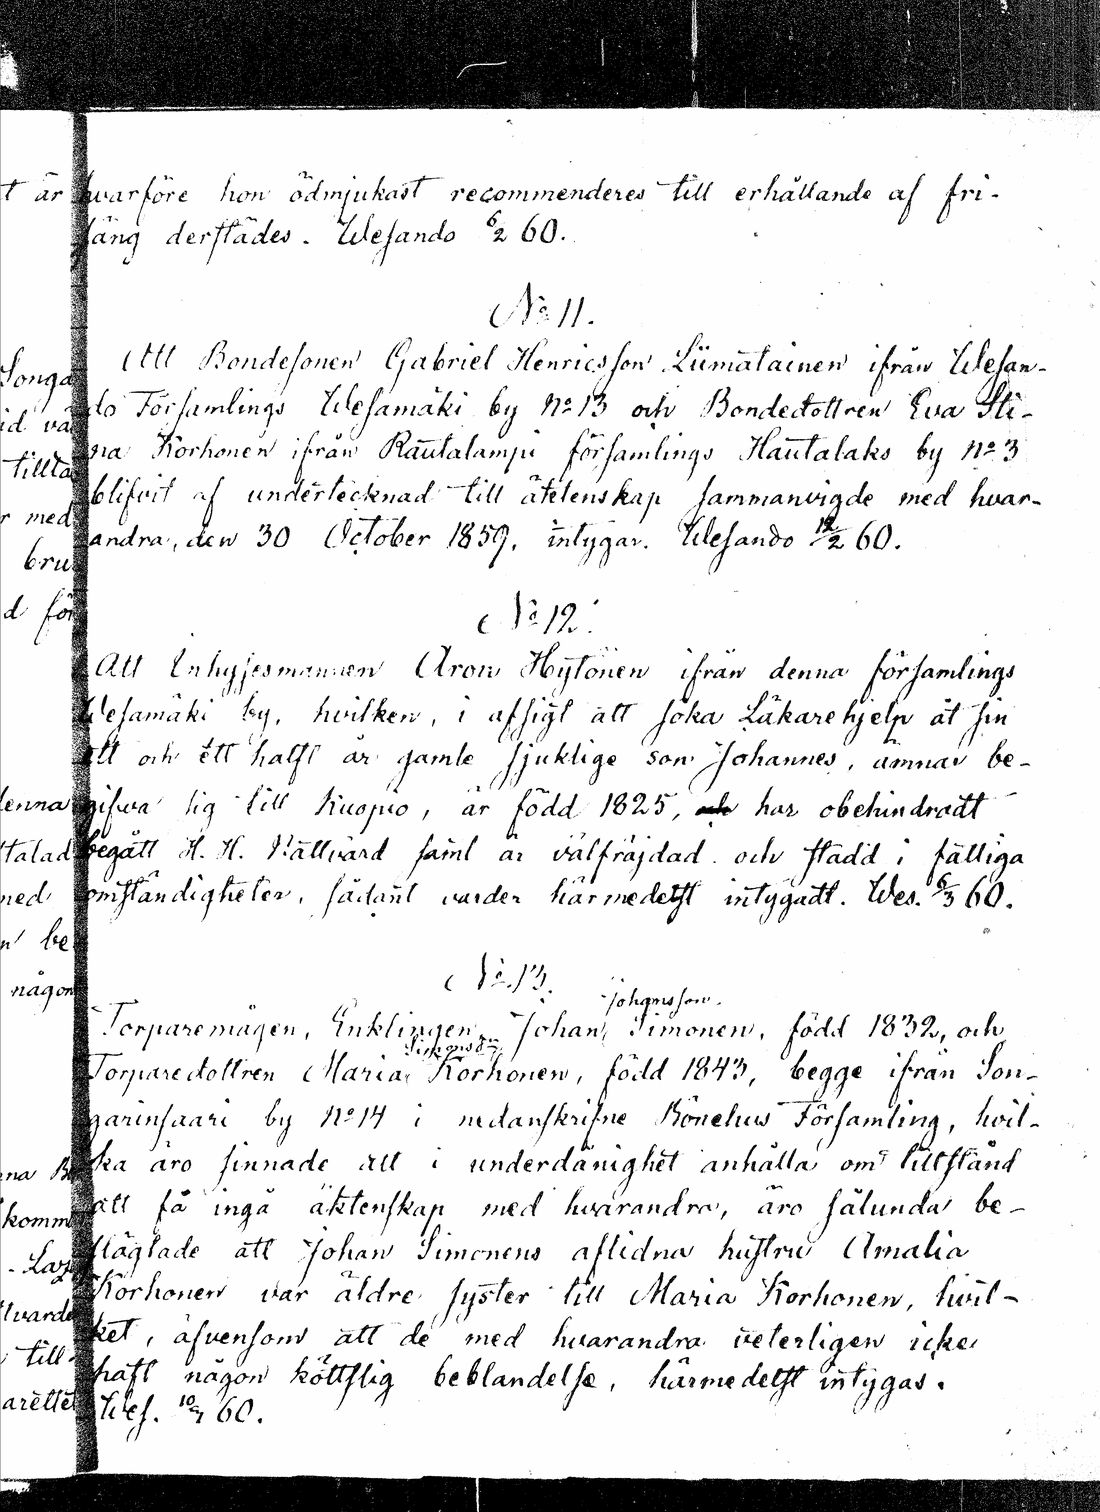 hvarföre hon ödmjukast recommenderes till erhållande af fri-
säng derstädes. Wesando 6/2 60.
No 11.
Att Bondesonen Gabriel Henricsson Liimatainen ifrån Wesan-
do Församlings Wesamäki by No 13 och Bondedottren Eva Sti-
na Korhonen ifrån Rautalampi församlings Hautalaks by No 3
blifvit af undertecknad till äktenskap sammanvigde med hvar-
andra, den 30 October 1859, intygar. Wesando 12/2 60.
No 12.
Att Inhysesmannen Aron Hytönen ifrån denna församlings
Wesamäki by, hvilken, i afsigt att söka Läkarehjelp åt sin
ett och ett halft år gamle sjuklige son Johannes, ämnar be-
gifwa sig till Kuopio, är född 1825, har obehindradt
begått H. H. Nattvard samt är välfräjdad och stadd i fattiga
omständigheter, sådant varder härmedelst intygadt. Wes. 6/3 60.
No 13.
Johansson.
Torparemågen, Enklingen Johan Simonen, född 1832, och
Simonsdr
Torparedottren Maria Korhonen, född 1843, begge ifrån Son-
garinsaari by No 14 i nedanskrifne Bönehus Församling, hvil-
ka äro sinnade att i underdånighet anhålla om tillstånd
att få ingå äktenskap med hvarandra, äro sålunda be-
slägtade att Johan Simonens aflidna hustru Amalia
Korhonen var äldre syster till Maria Korhonen, hvil-
ket, äfvensom att de med hvarandra veterligen icke
haft någon köttslig beblandelse, härmedelst intygas.
Wes. 60.